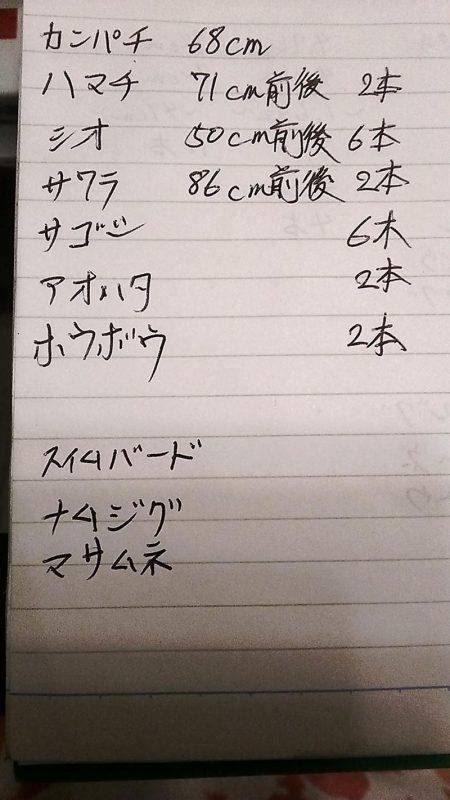 カンパチ 68cm
ハマチ 71cm前後 2本
シオ 50cm前後 6本
サワラ 86cm前後 2本
サゴシ 6本
アオハタ 2本
ホウボウ 2本
スイムバード
ナムジグ
マサムネ